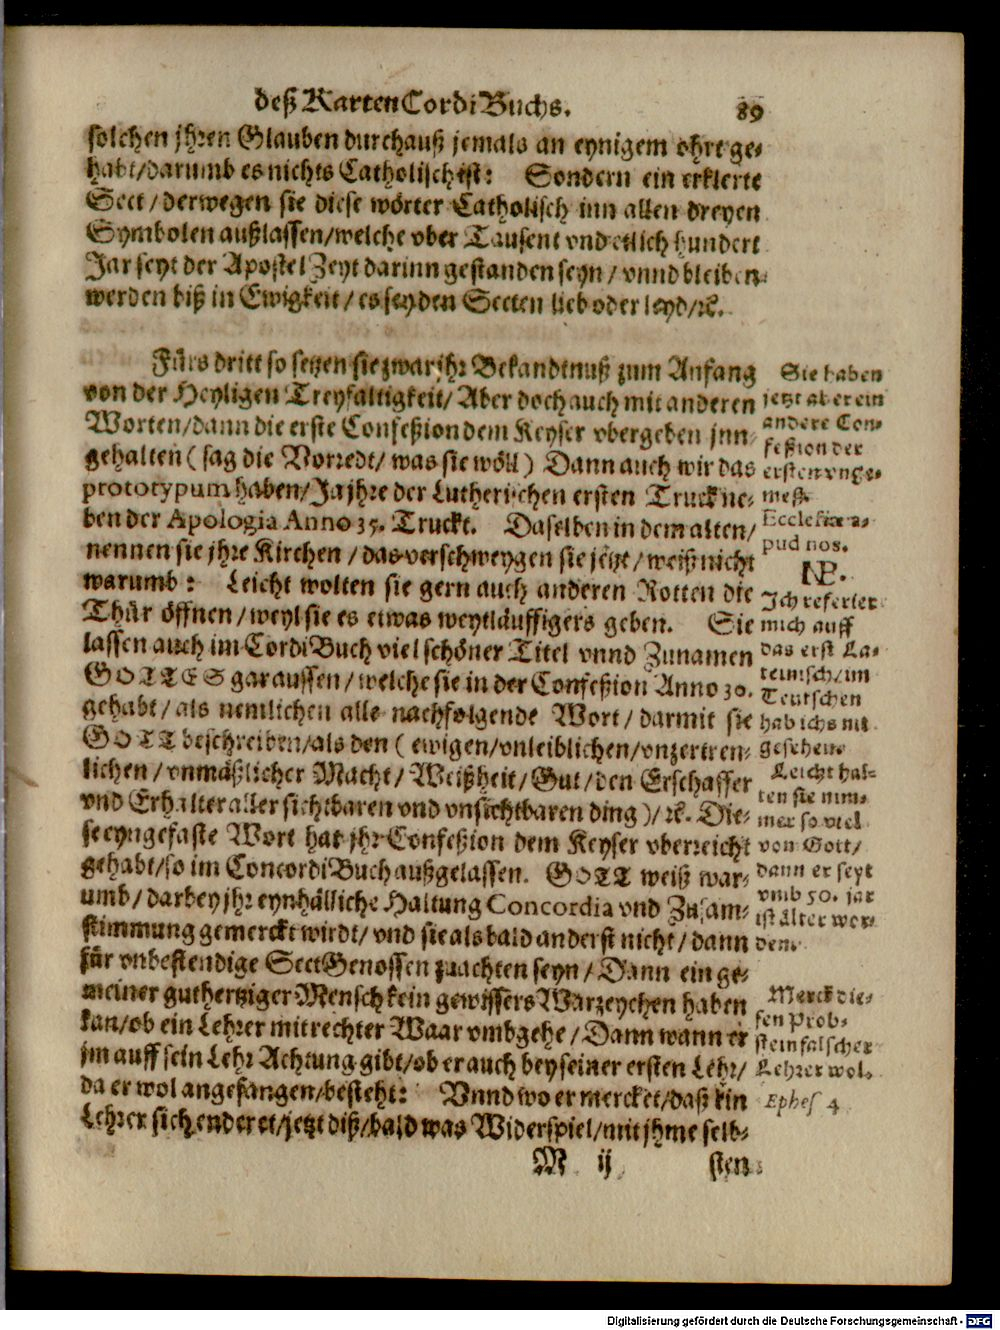 deß KartenCordiBuchs. 89
solchen jhren Glauben durchauß jemals an eynigem ohrt ge-
habt/darumb es nichts Catholisch ist: Sondern ein erklerte
Sect/derwegen sie diese wörter Catholisch inn allen dreyen
Symbolen außlassen/welche vber Tausent vnd etlich hundert
Jar seyt der Apostel Zeyt darinn gestanden seyn/vnnd bleiben
werden biß in Ewigkeit/es sey den Secten lieb oder leyd/ꝛc.
Fürs dritt so setzen sie zwar jhr Bekandtnuß zum Anfang
von der Heyligen Treyfaltigkeit/Aber doch auch mit anderen
Worten/dann die erste Confeßion dem Keyser vbergeben jnn-
gehalten (sag die Vorredt/was sie wöll) Dann auch wir das
prototypum haben/Ja jhre der Lutherischen ersten Truck ne-
ben der Apologia Anno 35. Truckt. Daselben in dem alten/
nennen sie jhre Kirchen/das verschweygen sie jetzt/weiß nicht
warumb: Leicht wolten sie gern auch anderen Rotten die
Thür öffnen/weyl sie es etwas weytläuffigers geben. Sie
lassen auch im CordiBuch viel schöner Titel vnnd Zunamen
GOTTES gar aussen/welche sie in der Confeßion Anno 30.
gehabt/als nemlichen alle nachfolgende Wort/darmit sie
GOTT beschreiben/als den (ewigen/vnleiblichen/vnzertren-
lichen/vnmäßlicher Macht/Weißheit/Gut/den Erschaffer
vnd Erhalter aller sichtbaren vnd vnsichtbaren ding)/ꝛc. Die-
se eyngefaste Wort hat jhr Confeßion dem Keyser vberreicht
gehabt/so im ConcordiBuch außgelassen. GOTT weiß war-
umb/darbey jhr eynhälliche Haltung Concordia vnd Zusam-
stimmung gemerckt wirdt/vnd sie als bald anderst nicht/dann
für vnbestendige SectGenossen zu achten seyn/Dann ein ge-
meiner guthertziger Mensch kein gewissers Warzeychen haben
kan/ob ein Lehrer mit rechter Waar vmbgehe/Dann wann er
jm auff sein Lehr Achtung gibt/ob er auch bey seiner ersten Lehr/
da er wol angefangen/besteht: Vnnd wo er mercket/daß kin
Lehrer sich enderet/jetzt diß/bald was Widerspiel/mit jhme selb-
M ij sten
Sie haben
jetzt aber ein
andere Con-
feßion der
ersten vnge-
meß.
Ecclesiæ a-
pud nos.
NB.
Ich referier
mich auff
das erst La-
teinisch/im
Teutschen
hab ichs nit
gesehen.
Leicht hal-
ten sie nim-
mer so viel
von Gott/
dann er seyt
vmb 50. jar
ist älter wor-
den.
Merck die-
sen Prob-
stein falscher
Lehrer wol.
Ephes 4
Digitalisierung gefördert durch die Deutsche Forschungsgemeinschaft - DFG